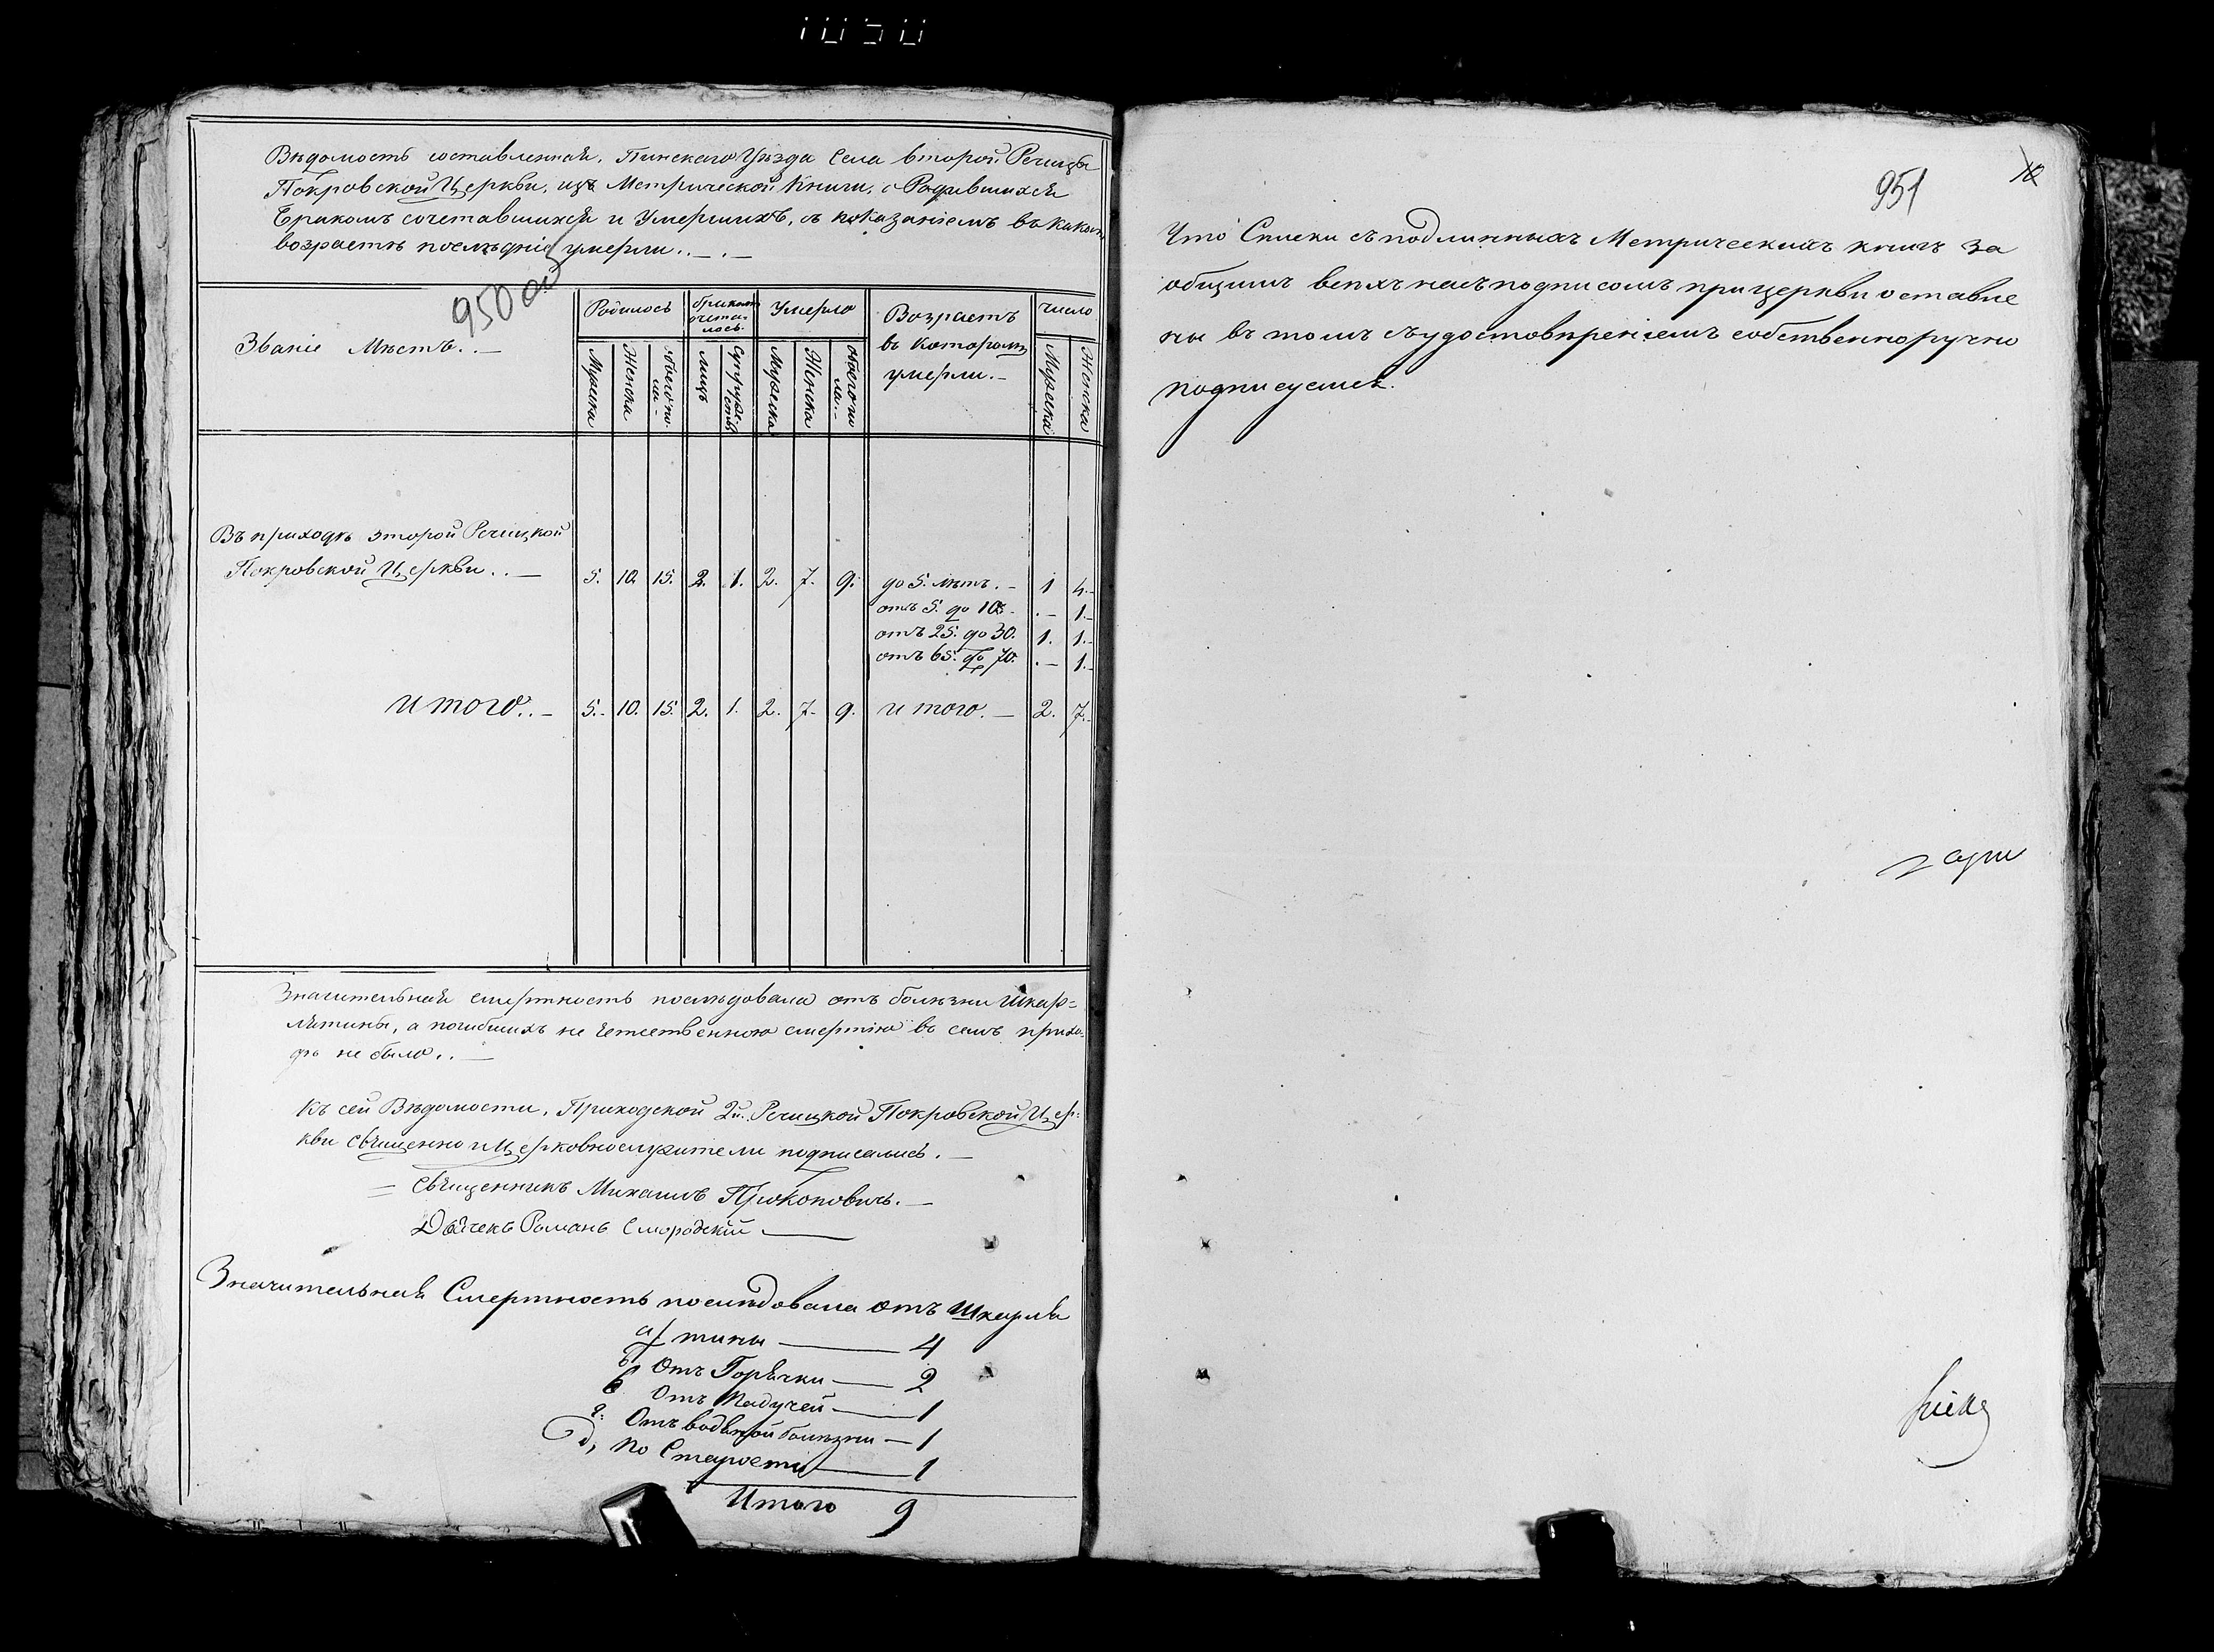 1050
Вѣдомость составленная, Пинскаго Уѣзда Села второй Речицы
Покровской Церкви, изъ Метрической Книги, о Родившихся
Бракомъ сочетавшихся и Умершихъ, съ показаніемъ въ какомъ
возрастѣ послѣдніе умерли..—.—
950 об
Званіе Мѣстъ..—
Родилось
Бракомъ сочета-лось.
Умерло
Возрастъ въ которомъ умерли.—
число
Мужска
Женска
обоего по-ла-
лицъ
супружествъ
Мужска
Женска
обоего по-ла.-
Мужска
Женска
Въ приходѣ второй Речицкой
Покровской Церкви..— 5. 10. 15. 2. 1. 2. 7. 9. до 5. лѣтъ.— 1 4.-
отъ 5. до 10.- .— 1.-
отъ 25. до 30. 1. 1.-
отъ 65. до 70. .— 1.-
итого..— 5.- 10. 15. 2. 1. 2. 7.- 9. итого.— 2. 7.-
Значительная смертность послѣдовала отъ болѣзни шкар=
лятины, а погибшихъ не естественною смертію въ семъ прихо-
дѣ не было..—
Къ сей Вѣдомости, Приходской 2й. Речицкой Покровской Цер-
кви священно и Церковнослужители подписались.—
= Священникъ Михаилъ Прокоповичъ.—
Дьячекъ Романъ Смородскій —
Значительная Смертность послѣдовала отъ Шкарля
а/ тины — 4
б Отъ Горячки — 2
в Отъ Падучей — 1
г. Отъ водяной болѣзни — 1
д, по Старости — 1
Итого 9
951
Что Списки съ подлинныхъ Метрическихъ книгъ за
общимъ всѣхъ насъ подписомъ при церкви оставле
ны въ томъ съ удостовѣреніемъ собственноручно
подписуемся.